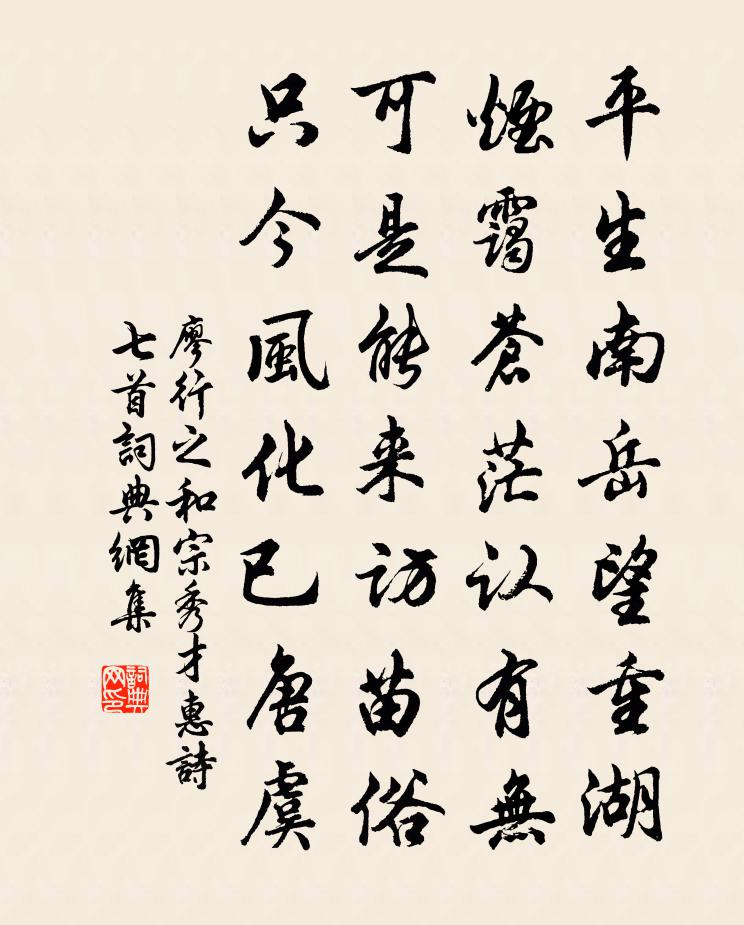 平生南岳望重湖
煙靄蒼茫认有無
可是能来访苗俗
只今風化已唐虞
廖行之和宗秀才惠詩
七首詞典網集
詞典网印